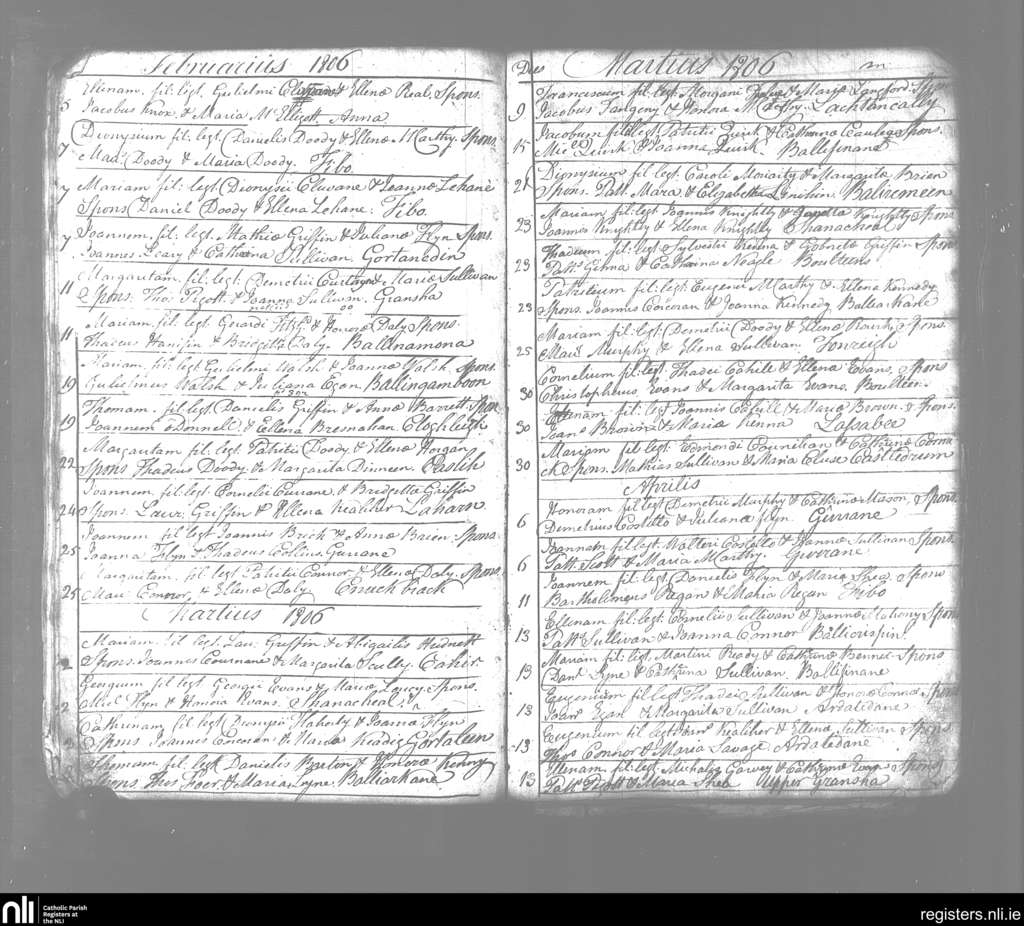 Februarius 1806
Ellenam. fil. legt. Gulielmi & Ellenæ Real. Spons.
5 Jacobus Knox. & Maria McElligott Anna
Dionysium fil: legt. Danielis Doody & Ellenæ McCarthy. Spons.
7 Maus. Doody & Maria Doody. Fibo.
7 Mariam fil: legt. Dionysii Cluvane & Joannæ Lehane
Spons Daniel Doody & Ellena Lehane. Fibo.
7 Joannem. fil: legt. Mathiæ Griffin & Julianæ Flyn Spons.
Joannes Leary & Catharina Sullivan. Gortanedin
Margaritam. fil: legt. Demetrii Courtayne & Mariæ Sullivan
11 Spons. Thos. Pigott. & Joanna Sullivan. Gransha
Mariam. fil: legt. Gerardi Fitzgd. & Honoræ Daly Spons.
11 Thadeus Hanifin & Bridgitta Daly. Ballinamona
Mariam fil: legt Gulielmi Walsh & Joannæ Walsh. Spons.
19 Gulielmus Walsh & Juliana Egan. Ballingamboon
Thomam. fil: legt. Danielis Griffin & Annæ Barrett Spon
19 Joannem o Donnell & Ellena Bresnahan. Cloghleigh
Margaritam fil: legt. Patritii Doody & Ellenæ Horgan
22 Spons Thadeus Doody & Margarita Dinneen.
Joannem. fil: legt. Cornelii Currane. & Bridgetta Griffin
24 Spons. Laur. Griffin & Ellena Kealiher Laharn.
Joannem fil legt Joannis Brick & Annæ Brien. Spons.
25 Joanna Flyn & Thadeus Collins. Gurrane
Margaritam. fil. legt Patritii Connor & Ellenæ Daly. Spons
25 Maus Connor, & Ellena Daly Knuckbrack
Martius 1806
Mariam. fil legt. Lau. Griffin & Abigailis Hidnett
2 Spons. Joannes Cournane & Margarita Scully. Cahir
Georgium fil legt Georgii Evans & Mariæ Loucy. Spons.
2 Michl. Flyn & Honora Evans. Shanacheal
Cathrinam fil: legt Dionysii Flaherty & Joanna Flyn
Spons Joannes Concoran & Maria Keadig Gortaleen
Thomam fil: legt Danielis Breton & Honoræ Kenny
Spons. Thos & Maria Lyne. Balliarkane
Dies Martius 1806
Franciscum fil. legt Morgani & Mariæ Langford Spons
9 Jacobus Langony & Honora Lachtancally
Jacobum fil legt Patritii Quirk & Catharina Spons.
15 Micl. Quirk & Joanna Quirk. Ballifinane
Dionysium fil: legt. Caroli Moriarty & Margarita Brien
21 Spons. Patt. Mara & Elizabetha Linchin. Baliremeen
Mariam fil: legt. Joannis Knightly & Knightly Spons
23 Joannes Knightly & Ellena Knightly Shanacheal
Thadeum fil: legt. Sylvestri & Gobnett Griffin Spon
23 Patts. Genna & Catharina Neagle Boulteens
Patritium fil: legt Eugenii McCarthy & Ellenæ Kennedy
23 Spons. Joannes Corcoran & Joanna Kennedy Balliarkane
Mariam fil: legt Demetrii Doody & Ellenæ Rourk, Spons.
25 Maus. Murphy & Ellena Sullivan. Fonreigh
Cornelium fil: legt. Thadei Cahill & Ellena Evans, Spons
30 Christopherus Evans & Margarita Evans. Boulteen
Ellenam fil: legt Joannis Cahill & Mariæ Brown. Spons.
30 Joans. Brown & Maria Kenna Lassabee
Mariam fil: legt. Edmondi Counehan & Cathrinæ Corma
30 ck Spons. Mathias Sullivan & Maria Cluse Castledrum
Aprilis
Honoram fil legt Demetrii Murphy & Cathrinæ Mason, Spons.
6 Demetrius Costello & Juliana Flyn. Gurrane
Joannem fil: legt. Walteri Costello & Joannæ Sullivan Spons
6 Patt. Scott & Maria McCarthy. Gurrane
Joannem fil: legt. Danielis Flyn & Mariæ Shea Spons
11 Bartholomeus Regan & Maria Regan Fibo
Ellenam fil: legt. Cornelius Sullivan & Joannæ Mahony Spons
13 Patt. Sullivan & Joanna Connor Ballicrispin
Mariam fil: legt. Martini Ready & Cathrinæ Bennet. Spons
13 Danl. Lyne & Cathrina Sullivan. Ballifinane
Eugenium fil legt Thadei Sullivan & Honoræ Connor Spons
13 Joans Egan & Margarita Sullivan Ardaledane
Eugenium fil legt Kealiher & Ellena Sullivan Spons
13 Connor & Maria Savage Ardaledane
Ellenam fil: legt: Michalis Garvey & Cathrinæ Spons
13 Patt. Scott & Maria Shea Upper Gransha
nli
Catholic Parish
Registers at
the NLI
registers.nli.ie